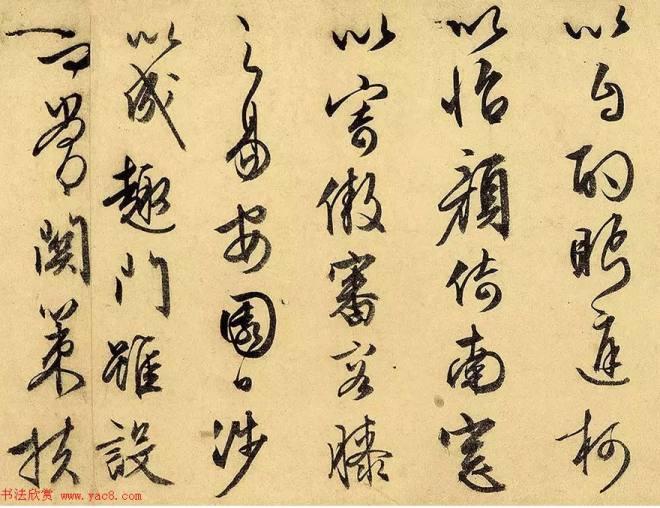 以自酌眄庭柯
以怡顔倚南窓
以寄傲審容膝
之易安園日涉
以成趣門雖設
而常關策扶
书法欣赏 www.yac8.com